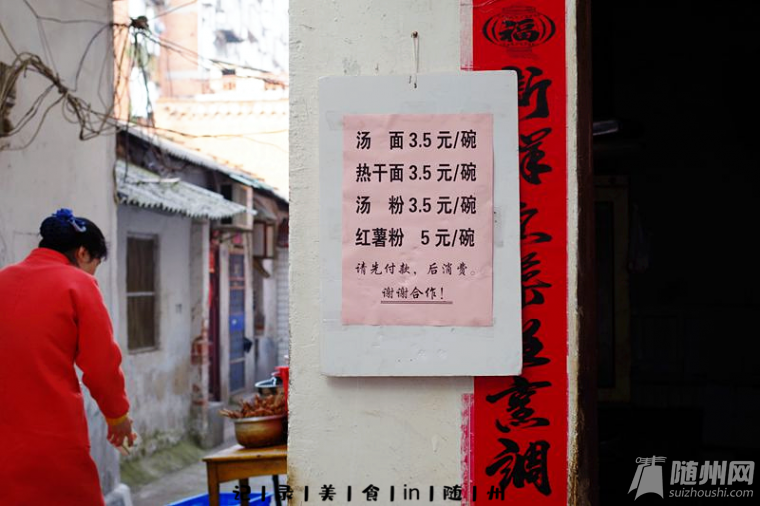 汤 面 3.5 元/碗
热干面 3.5 元/碗
汤 粉 3.5 元/碗
红薯粉 5 元/碗
请先付款，后消费。
谢谢合作！
福
调
记 | 录 | 美 | 食 | in | 随 | 州
随州网
suizhoushi.com